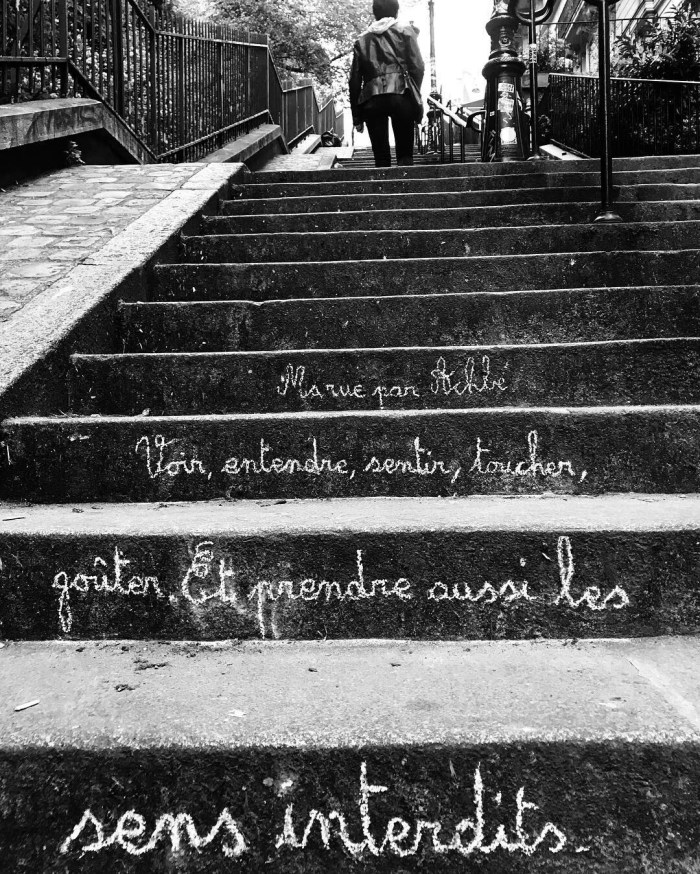 Ma rue par Achbé
Voir, entendre, sentir, toucher,
goûter. Et prendre aussi les
sens interdits.